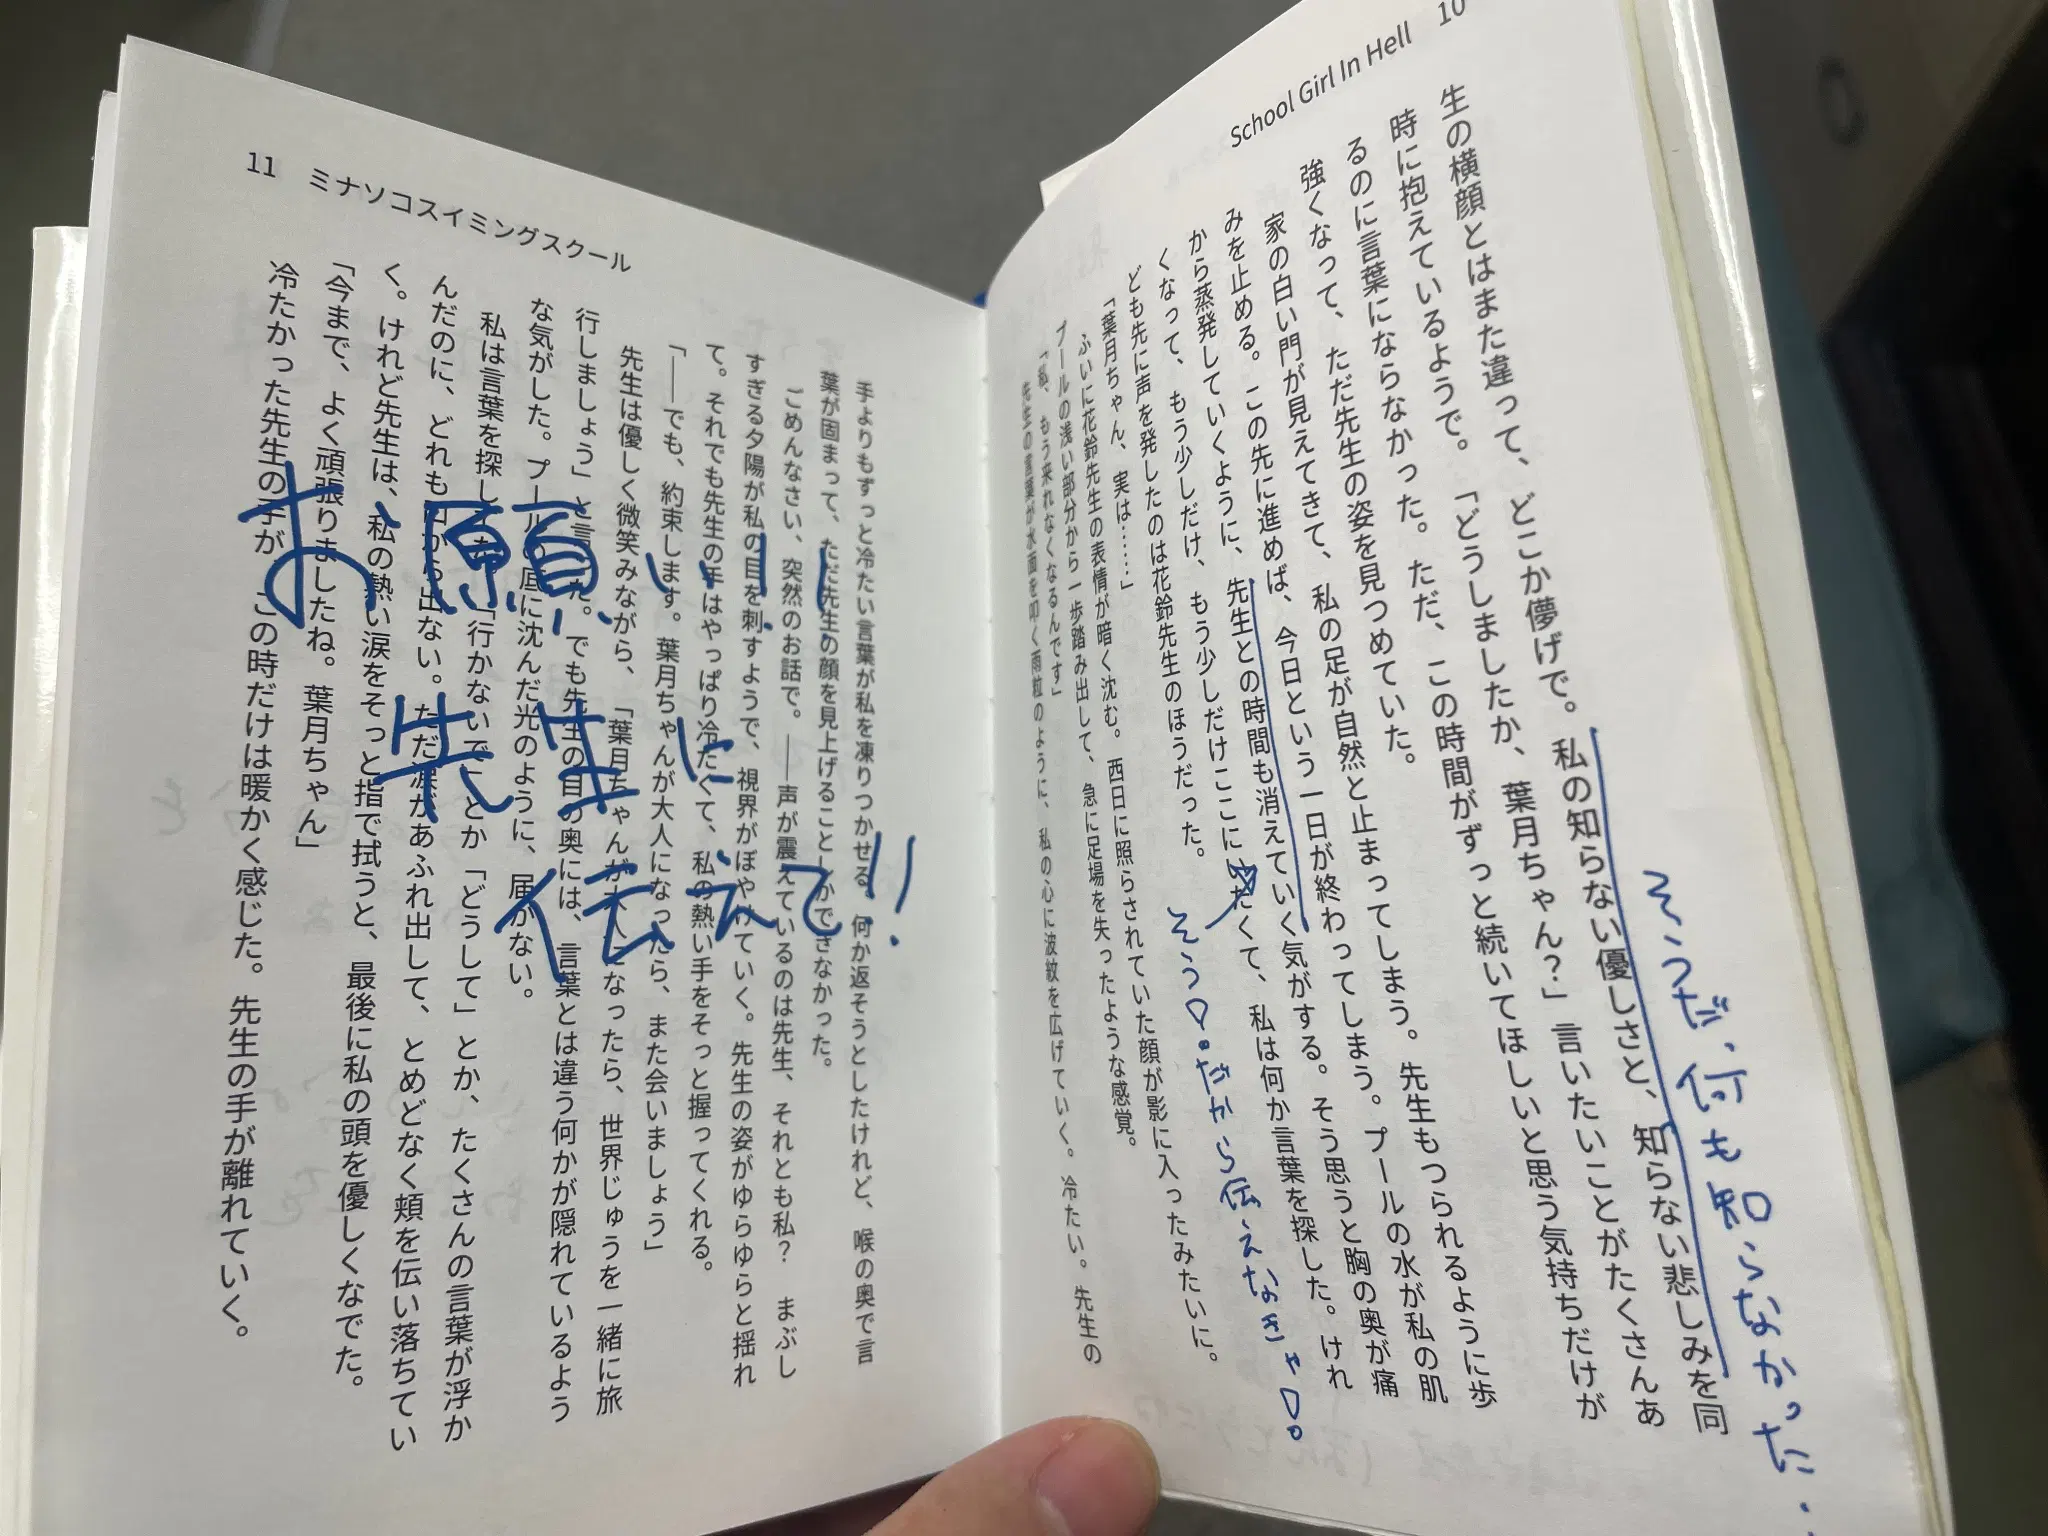 School Girl In Hell 10
生の横顔とはまた違って、どこか儚げで。私の知らない優しさと、知らない悲しみを同
時に抱えているようで。「どうしましたか、葉月ちゃん？」言いたいことがたくさんあ
るのに言葉にならなかった。ただ、この時間がずっと続いてほしいと思う気持ちだけが
強くなって、ただ先生の姿を見つめていた。
家の白い門が見えてきて、私の足が自然と止まってしまう。先生もつられるように歩
みを止める。この先に進めば、今日という一日が終わってしまう。プールの水が私の肌
から蒸発していくように、先生との時間も消えていく気がする。そう思うと胸の奥が痛
くなって、もう少しだけ、もう少しだけここにいたくて、私は何か言葉を探した。けれ
ども先に声を発したのは花鈴先生のほうだった。
「葉月ちゃん、実は……」
ふいに花鈴先生の表情が暗く沈む。西日に照らされていた顔が影に入ったみたいに。
プールの浅い部分から一歩踏み出して、急に足場を失ったような感覚。
「私、もう来れなくなるんです」
先生の言葉が水面を叩く雨粒のように、私の心に波紋を広げていく。冷たい。先生の
そうだ、何も知らなかった…
そう！だから伝えなきゃ！。
11 ミナソコスイミングスクール
手よりもずっと冷たい言葉が私を凍りつかせる。何か返そうとしたけれど、喉の奥で言
葉が固まって、ただ先生の顔を見上げることしかできなかった。
ごめんなさい、突然のお話で。――声が震えているのは先生、それとも私？　まぶし
すぎる夕陽が私の目を刺すようで、視界がぼやけていく。先生の姿がゆらゆらと揺れ
て。それでも先生の手はやっぱり冷たくて、私の熱い手をそっと握ってくれる。
「――でも、約束します。葉月ちゃんが大人になったら、また会いましょう」
先生は優しく微笑みながら、「葉月ちゃんが大人になったら、世界じゅうを一緒に旅
行しましょう」と言った。でも先生の目の奥には、言葉とは違う何かが隠れているよう
な気がした。プールの底に沈んだ光のように、届かない。
私は言葉を探した。「行かないで」とか「どうして」とか、たくさんの言葉が浮か
んだのに、どれも口から出ない。ただ涙があふれ出して、とめどなく頬を伝い落ちてい
く。けれど先生は、私の熱い涙をそっと指で拭うと、最後に私の頭を優しくなでた。
「今まで、よく頑張りましたね。葉月ちゃん」
冷たかった先生の手が、この時だけは暖かく感じた。先生の手が離れていく。
お願い!!
先生に
伝えて!!